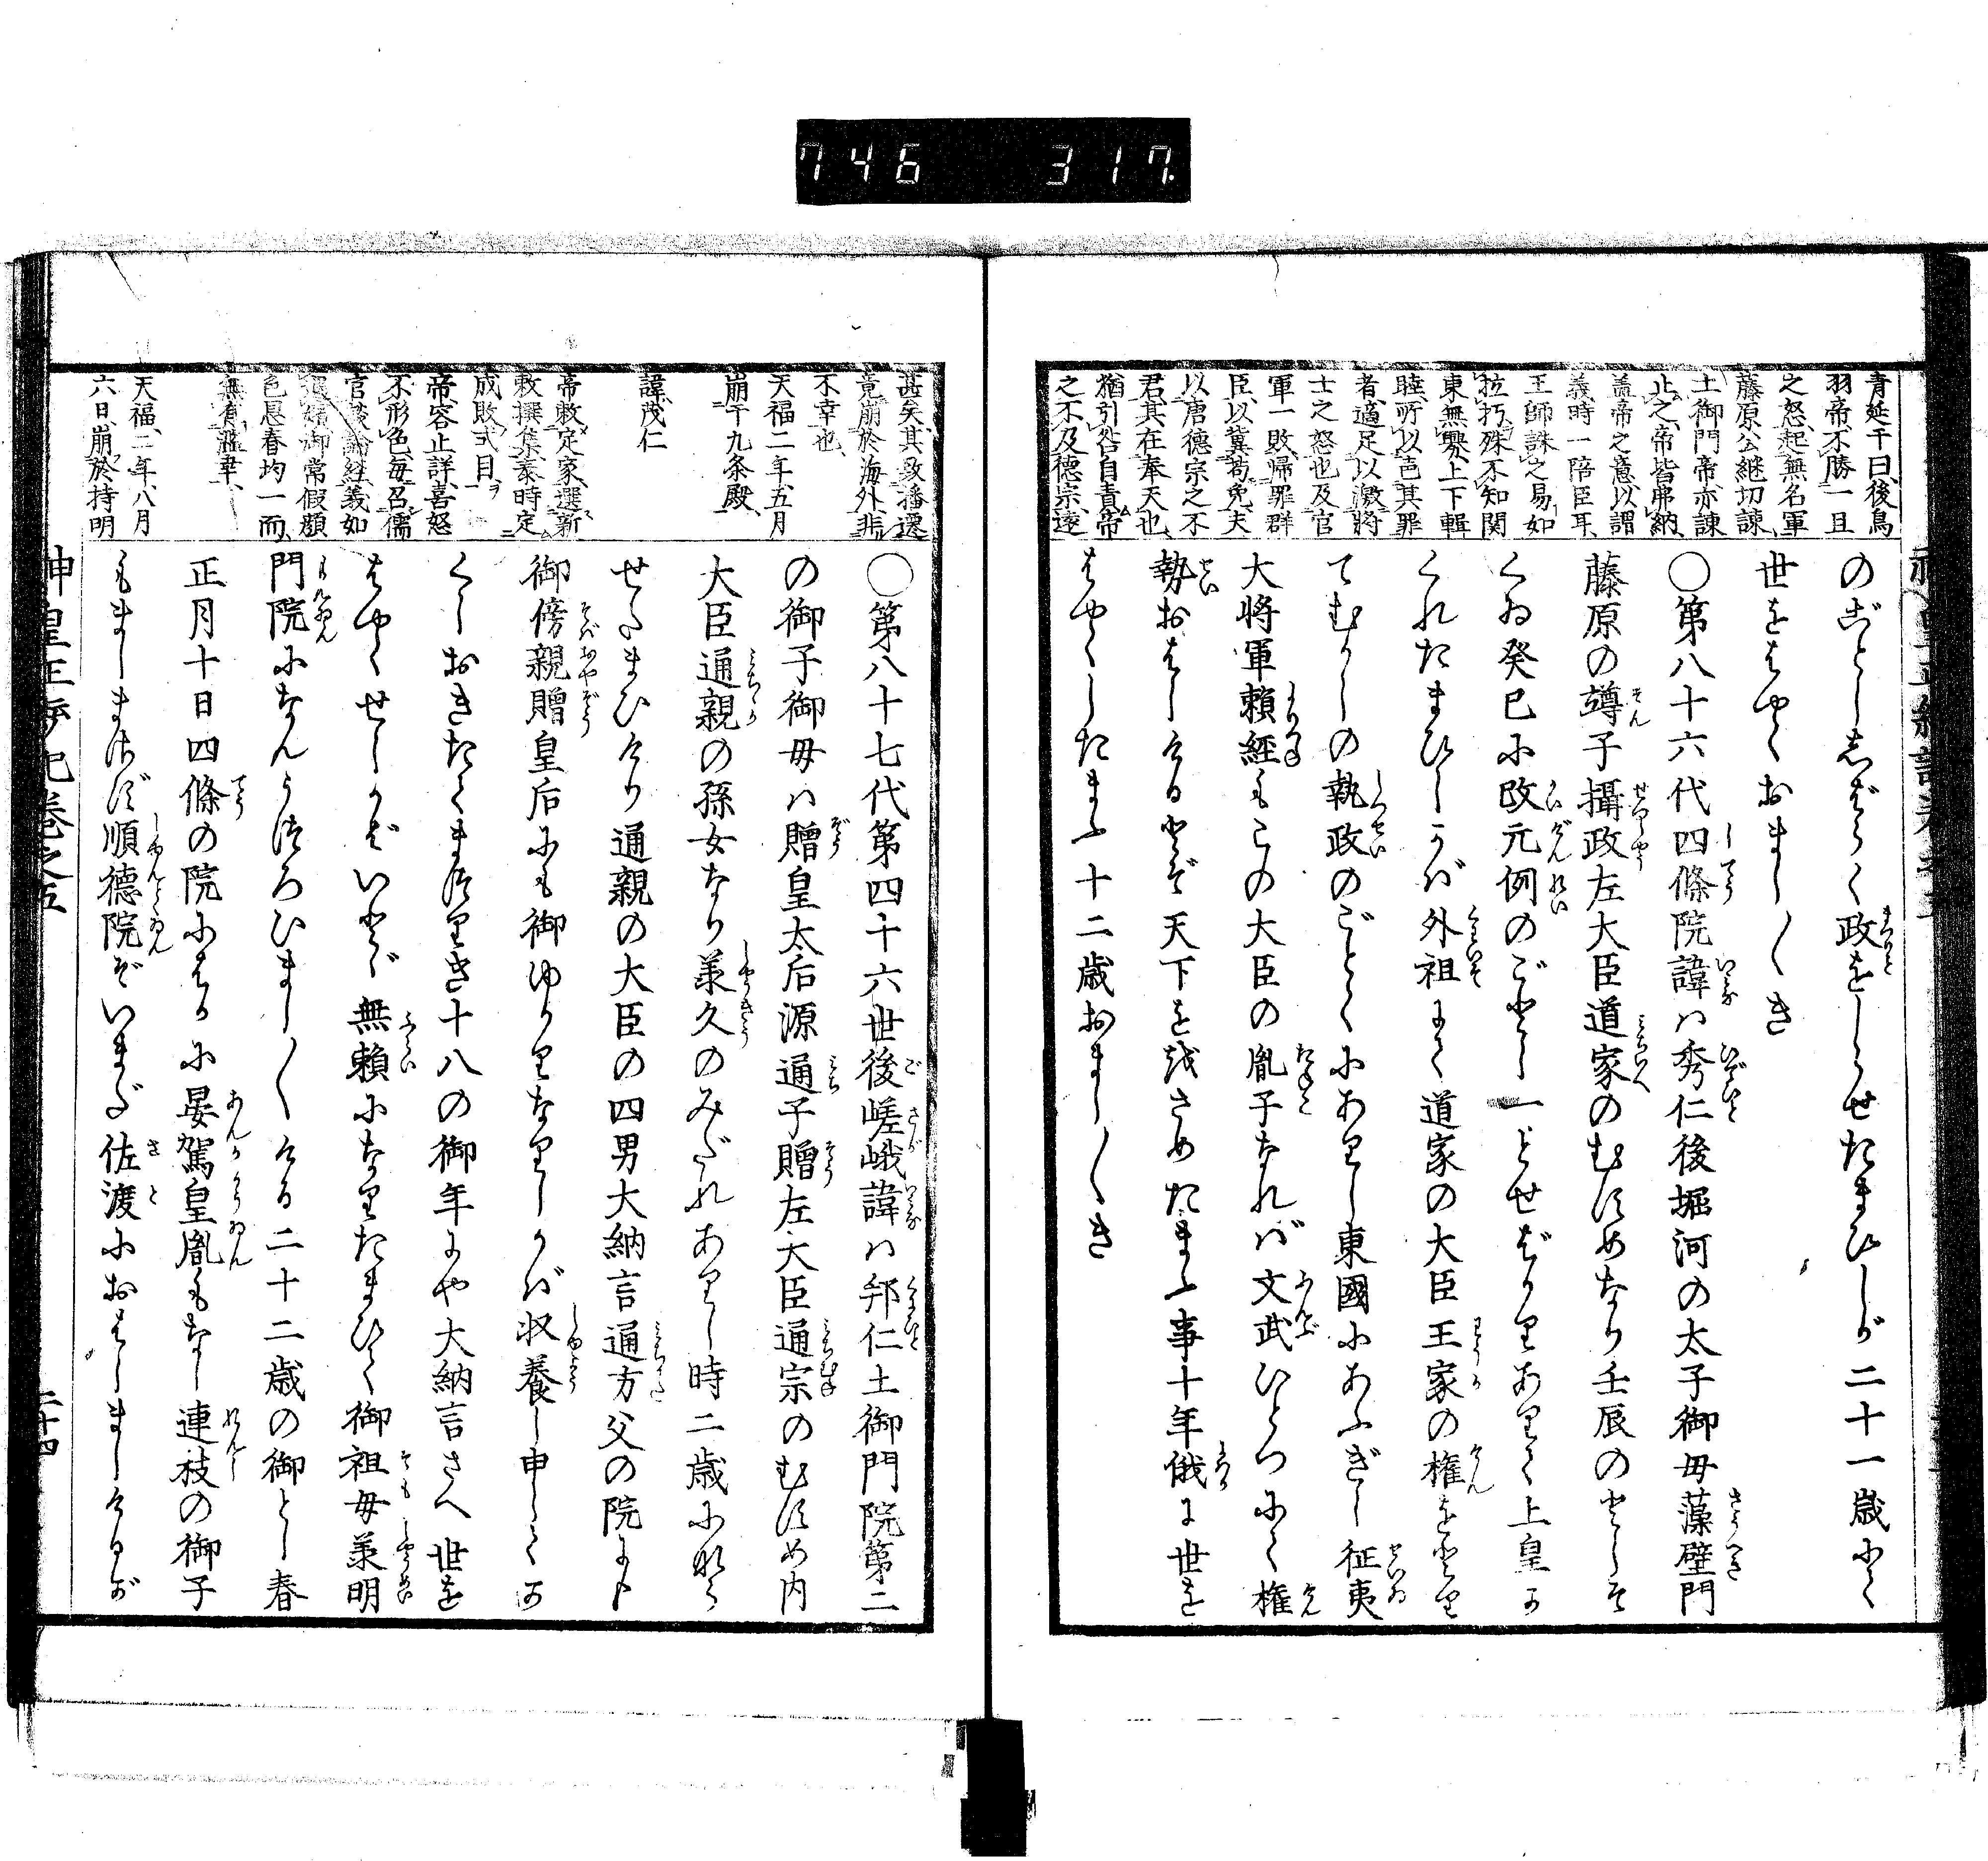 746 317.
青延于曰、後鳥
羽帝、不勝一旦
之怒、起無名軍
藤原公継切諫、
土御門帝亦諫
止之、帝皆弗納、
蓋帝之意、以謂
義時一陪臣耳、
王師誅之易如
拉朽、殊不知関
東無釁、上下輯
睦、所以邑其罪
者、適足以激将
士之怒也、及官
軍一敗、帰罪群
臣、以冀苟免、夫
以唐徳宗之不
君、其在奉天也、
猶引咎自責、帝
之不及徳宗、遠
のごとししばらく政をしらせたまひしが二十一歳にて
世をはやくおまし〱き
〇第八十六代四條院諱ハ秀仁後堀河の太子御母藻壁門
藤原の竴子攝政左大臣道家のむすめなり壬辰のとしそ
くゐ癸巳に改元例のごとし一とせばかりありて上皇か
くれたまひしかば外祖にて道家の大臣王家の権をとり
てむかしの執政のごとくにありし東國にあふぎし征夷
大将軍頼經もこの大臣の胤子なれバ文武ひとつにて権
勢おはしけるとぞ天下をおさめたまふ事十年俄に世を
はやくしたまふ十二歳おまし〱き
甚矣、其致播遷
竟崩於海外、非
不幸也、
天福二年、五月
崩于九条殿、
諱、茂仁
帝敕定家、選新
敕撰集、泰時定
成敗式目ヲ
帝、容止詳、喜怒
不形色、毎召儒
官談論経義、如
嬪婦御常假顔
色、恩春均一而、
無有濫聿、
天福、二年、八月
六日、崩於持明
〇第八十七代第四十六世後嵯峨諱ハ邦仁土御門院第二
の御子御母ハ贈皇太后源通子贈左大臣通宗のむすめ内
大臣通親の孫女なり承久のみだれありし時二歳になら
せたまひけり通親の大臣の四男大納言通方父の院にも
御傍親贈皇后にも御ゆかりなりしかば収養し申てか
くしおきたてまつりき十八の御年にや大納言さへ世を
はやくせしかばいとゞ無頼になりたまひて御祖母承明
門院になんうつろひまし〱ける二十二歳の御とし春
正月十日四條の院にはかに晏駕皇胤もなし連枝の御子
もましまさず順徳院ぞいまだ佐渡におはしましけるが
神皇正統記巻之五
二十四